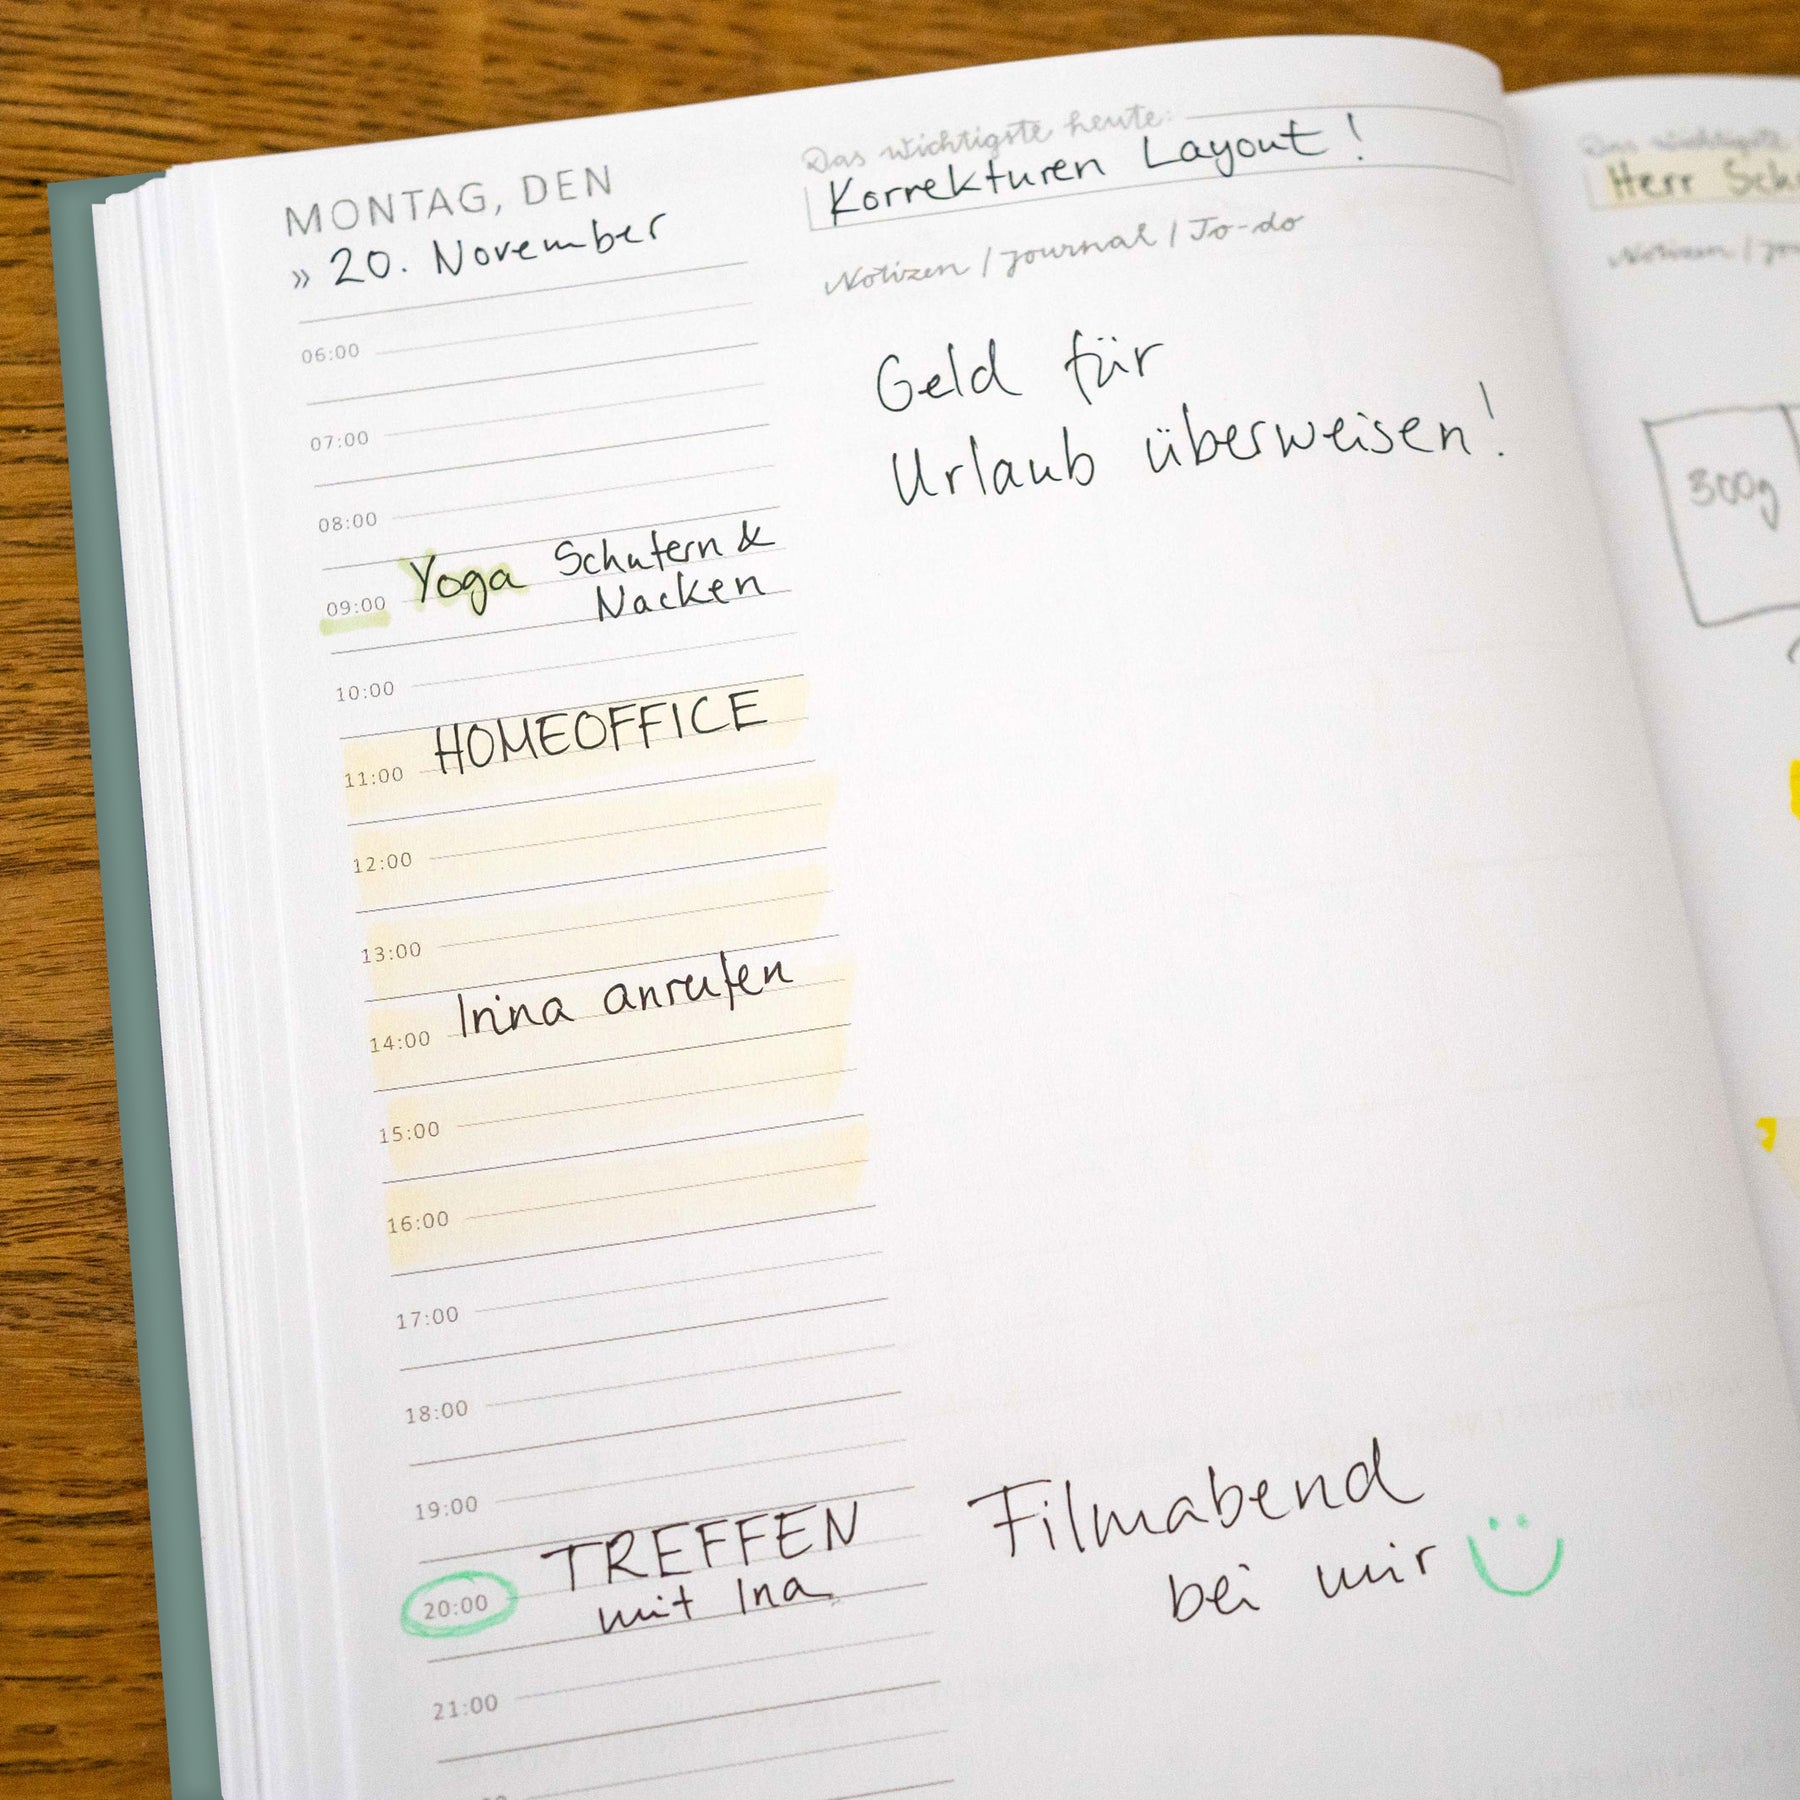 MONTAG, DEN
» 20. November
06:00
07:00
08:00
09:00 Yoga Schultern &
Nacken
10:00
11:00 HOMEOFFICE
12:00
13:00
14:00 Irina anrufen
15:00
16:00
17:00
18:00
19:00
20:00 TREFFEN
mit Ina
21:00
Das wichtigste heute:
Korrekturen Layout!
Notizen / Journal / To-do
Geld für
Urlaub überweisen!
Filmabend
bei mir
Das wichtigste
Herr
Notizen /
300g